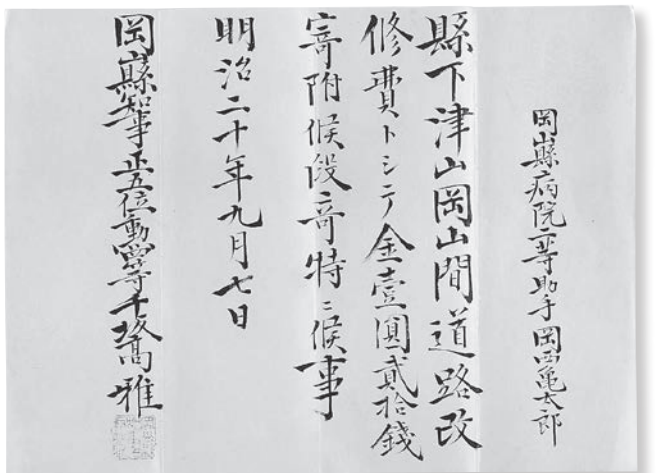 岡山縣病院二等助手岡西亀太郎
縣下津山岡山間道路改
修費トシテ金壹圓貳拾錢
寄附候段奇特ニ候事
明治二十年九月七日
岡山縣知事正五位勳四等千坂高雅